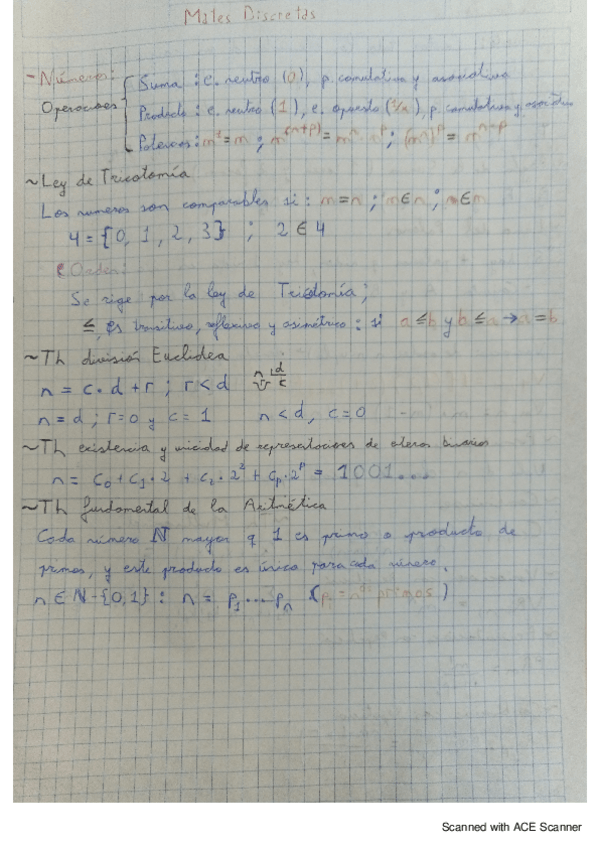 Mates Discretas
- Números:
Operaciones { Suma : e. neutro (0), p. conmutativa y asociativa
Producto : e. neutro (1), e. opuesto (1/x), p. conmutativa y asociativa
Potencias : m¹ = m ; m^(n+p) = mⁿ · m^p ; (mⁿ)^p = m^(n·p)
~ Ley de Tricotomía
Los numeros son comparables si : m = n ; m ∈ n ; n ∈ m
4 = {0, 1, 2, 3} ; 2 ∈ 4
Orden:
Se rige por la ley de Tricotomía;
≤, es transitivo, reflexivo y asimétrico : si a ≤ b y b ≤ a → a = b
~ Th división Euclidea
n = c · d + r ; r < d n |d r c
n = d ; r = 0 y c = 1 n < d, c = 0
~ Th existencia y unicidad de representaciones de binarios
n = c₀ + c₁ · 2 + c₂ · 2² + cₚ · 2^p = 1001...
~ Th fundamental de la Aritmética
Cada número N mayor q 1 es primo o producto de
primos, y este producto es único para cada número.
n ∈ N - {0,1} : n = p₁ ... pₙ (pᵢ = nºs primos)
Scanned with ACE Scanner